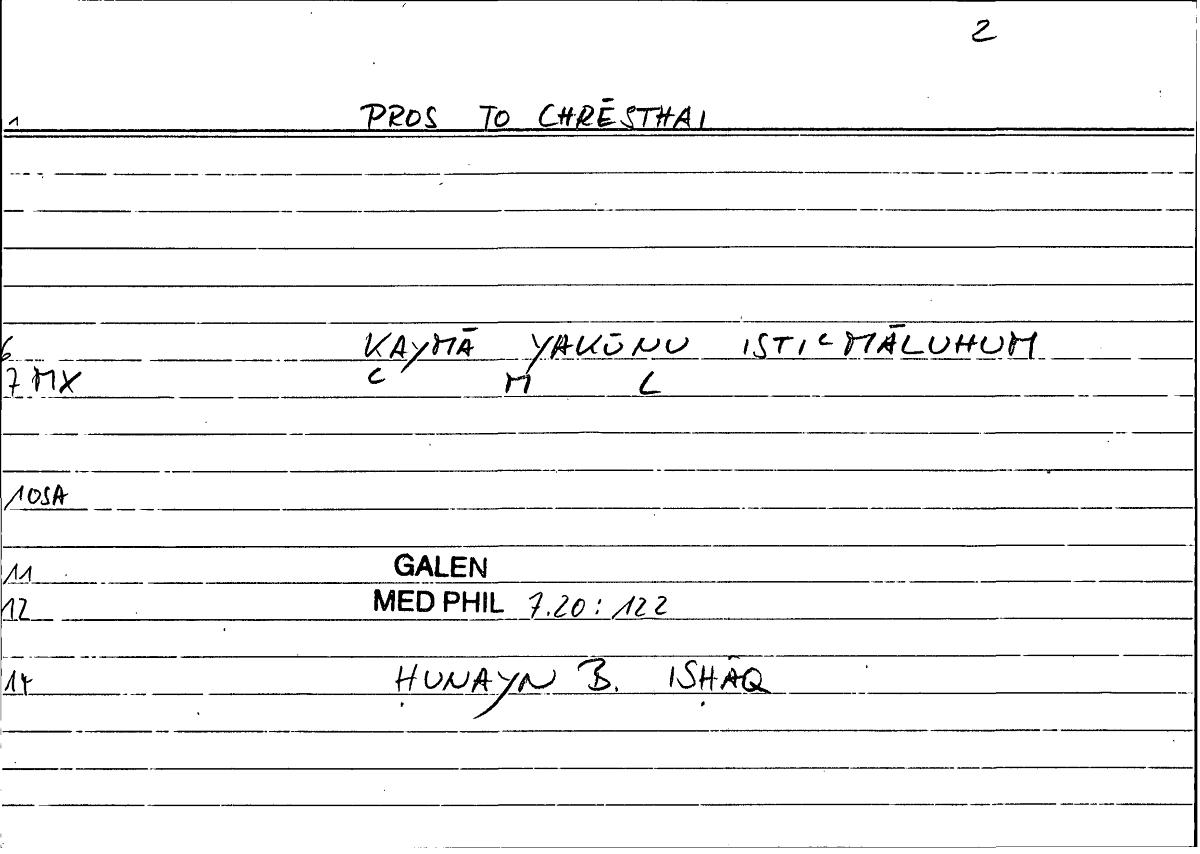 2
1 PROS TO CHRĒSTHAI
6 KAYMĀ YAKŪNU ISTIᶜMĀLUHUM
7 MX C M L
10SA
11 GALEN
12 MED PHIL 7.20: 122
14 ḤUNAYN B. ISḤĀQ